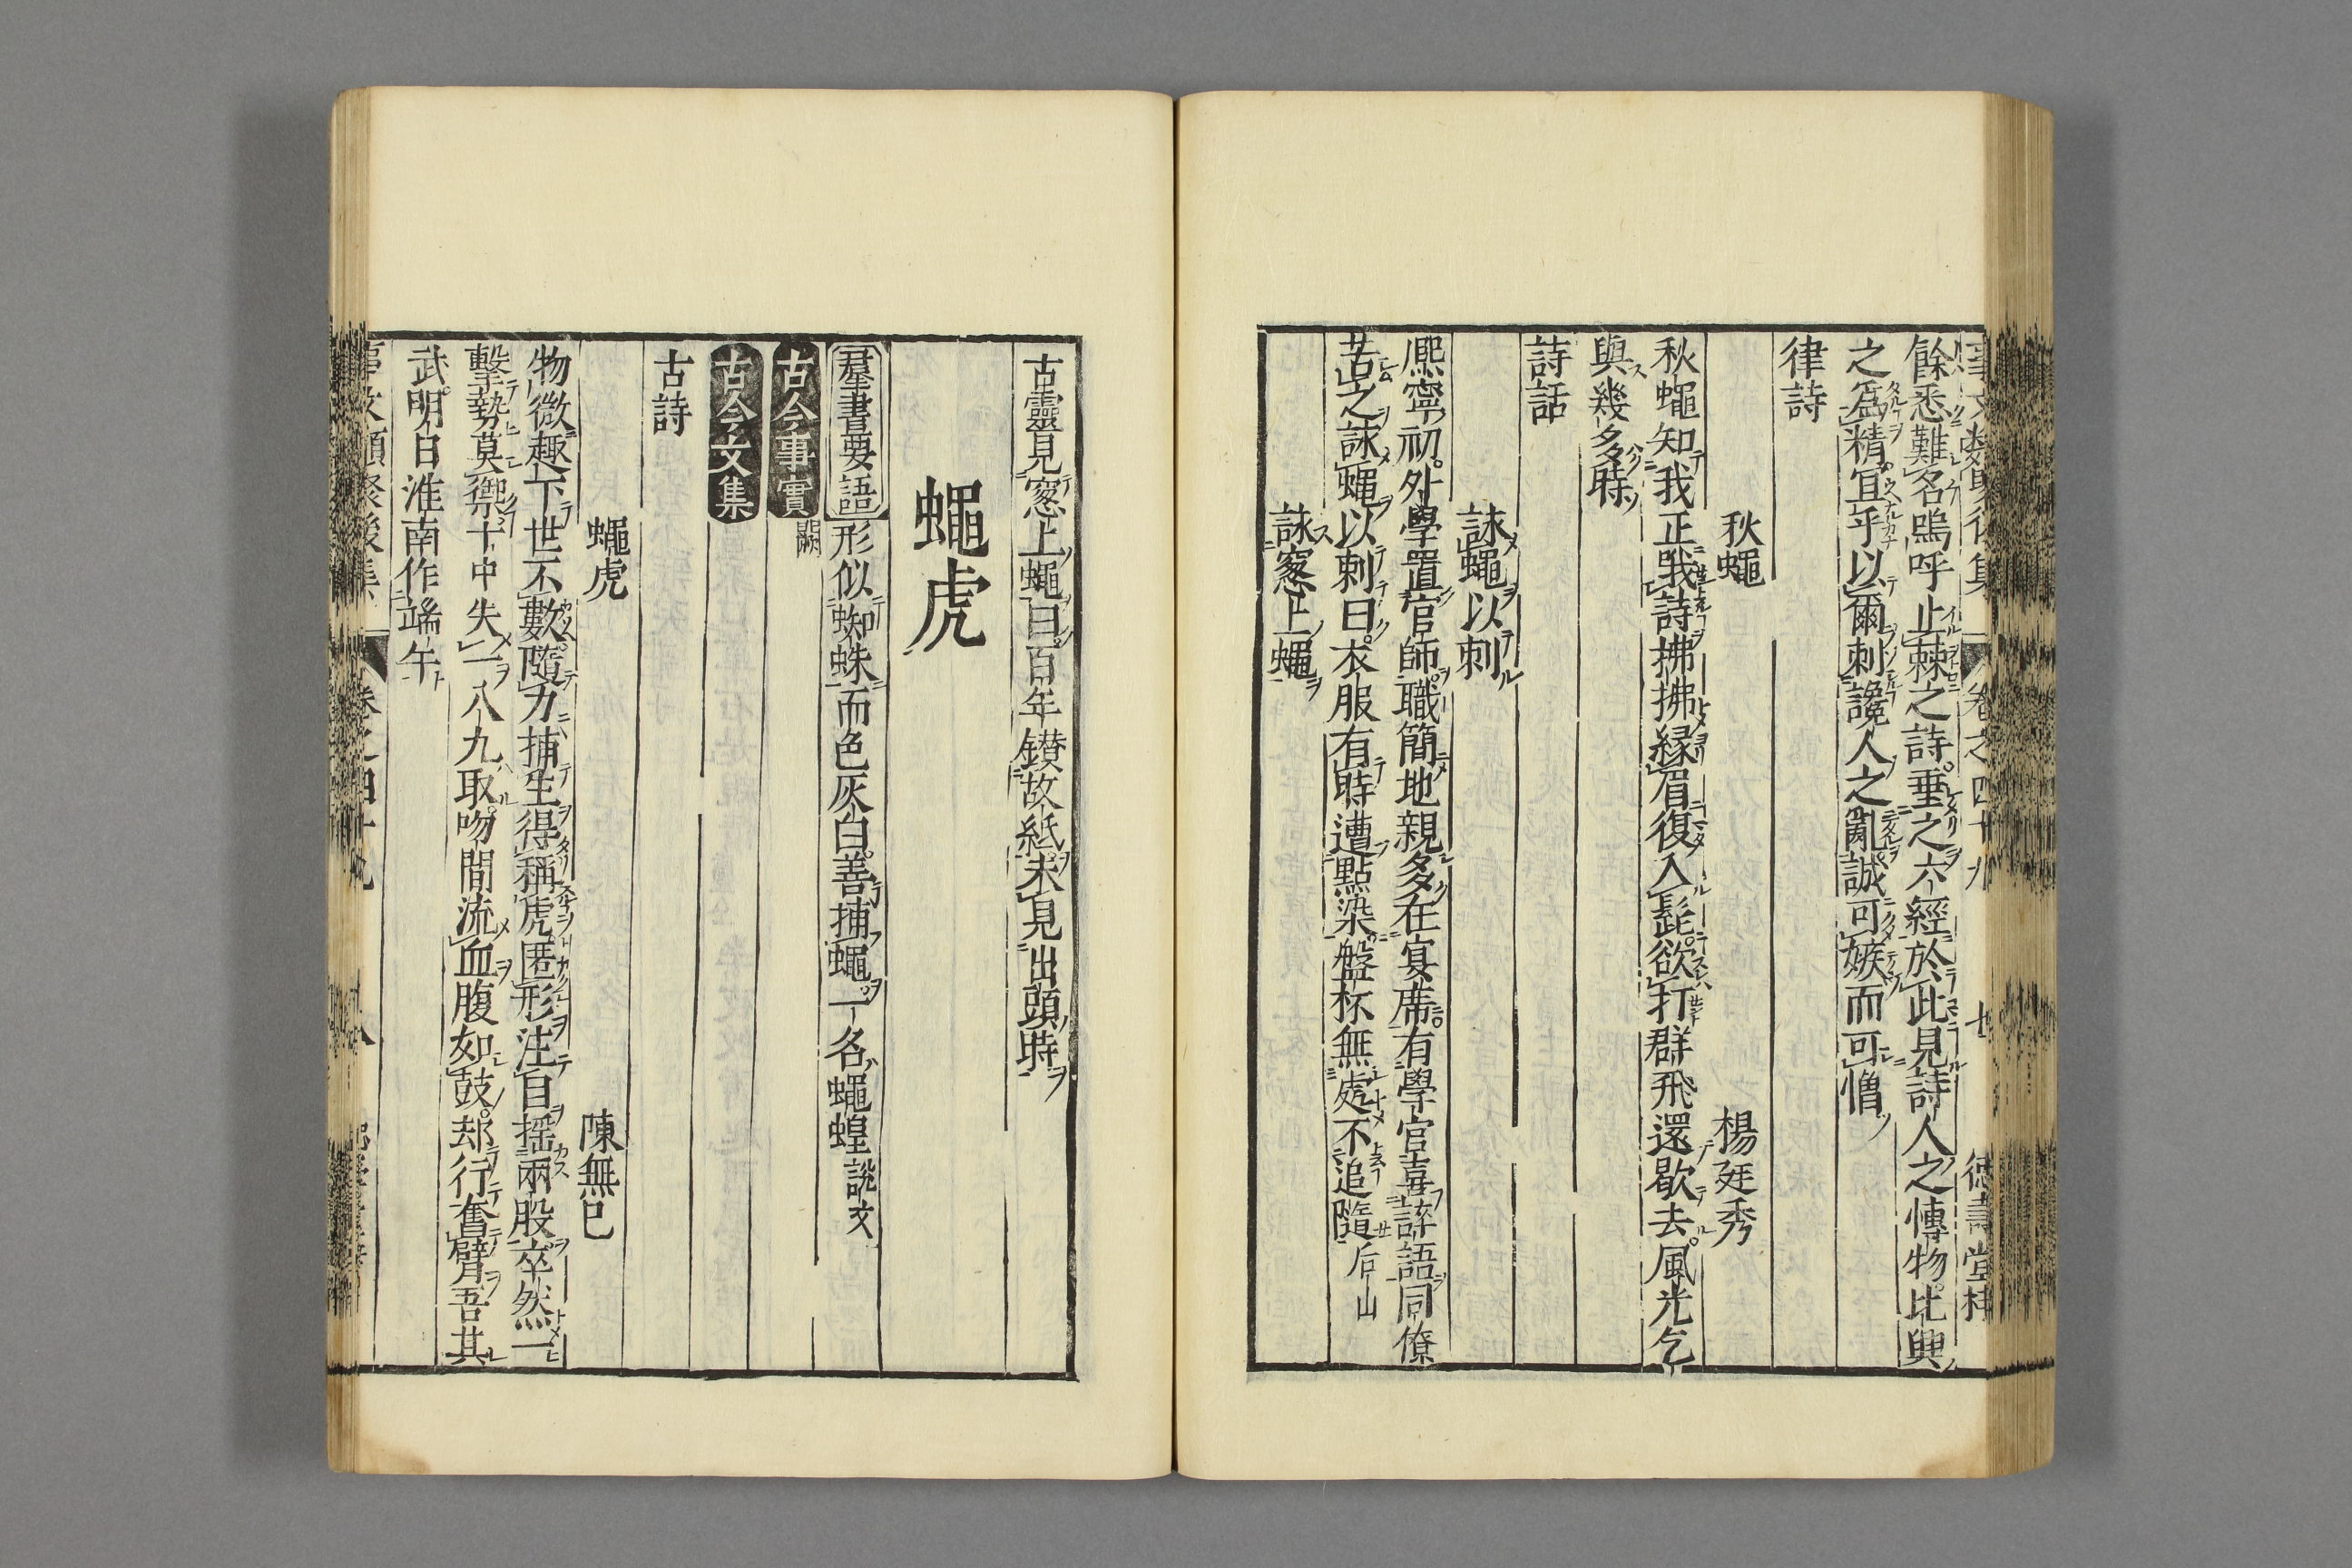 餘悉難名嗚呼止棘之詩垂之六經於此見詩人之慱物比興
之爲精宜乎以爾刺讒人之亂誠可嫉而可憎
律詩
秋蠅　楊廷秀
秋蠅知我正哦詩拂拂縁眉復入髭欲打群飛還歇去風光乞
與幾多時
詩話
詠蠅以刺
熈寧初外學置官師職簡地親多在宴席有學官喜誶語同僚
苦之詠蠅以刺曰衣服有時遭點染盤杯無處不追隨后山
詠窓上蠅
古靈見窓上蠅曰百年鑚故紙未見出頭時
蠅虎
羣書要語形似蜘蛛而色灰白善捕蠅一名蠅蝗說文
古今事實闕
古今文集
古詩
蠅虎　陳無已
物微趣下世不數隨力捕生得稱虎匿形注目摇兩股卒然一
擊勢莫禦十中失一八九取吻間流血腹如鼓却行奮臂吾其
武明日淮南作端午